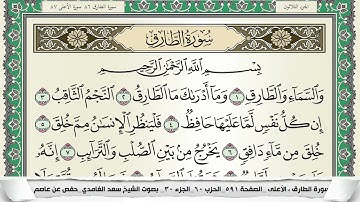 الجزء الثلاثون
سورة الطارق ٨٦ سورة الأعلى ٨٧
سُورَةُ الطَّارِقِ
بِسْمِ اللَّهِ الرَّحْمَٰنِ الرَّحِيمِ
وَالسَّمَاءِ وَالطَّارِقِ ١ وَمَا أَدْرَاكَ مَا الطَّارِقُ ٢ النَّجْمُ الثَّاقِبُ ٣
إِنْ كُلُّ نَفْسٍ لَمَّا عَلَيْهَا حَافِظٌ ٤ فَلْيَنْظُرِ الْإِنْسَانُ مِمَّ خُلِقَ ٥
خُلِقَ مِنْ مَاءٍ دَافِقٍ ٦ يَخْرُجُ مِنْ بَيْنِ الصُّلْبِ وَالتَّرَائِبِ ٧ إِنَّهُ
سورة الطارق ، الأعلى . الصفحة ٥٩١ . الحزب ٦٠ . الجزء ٣٠ . بصوت الشيخ سعد الغامدي . حفص عن عاصم